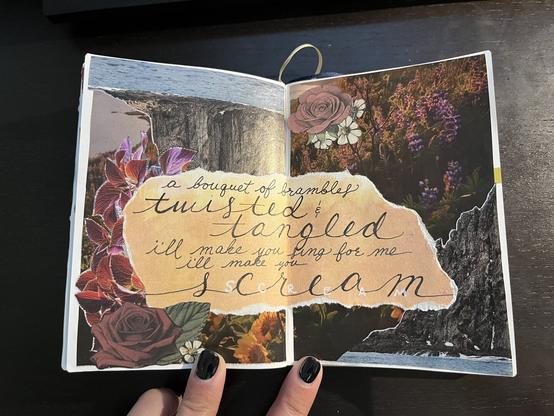 a bouquet of brambles
twisted &
tangled
i'll make you sing for me
i'll make you
scream